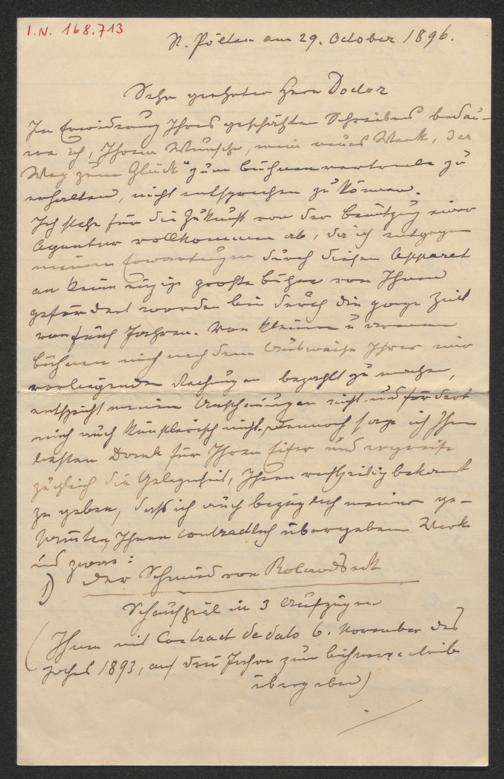 I.N. 168.713
St. Pölten am 29. October 1896.
Sehr geehrter Herr Doctor
In Erwiderung Ihres geschätzten Schreibens bedau-
re ich, Ihrem Wunsche, mein neues Werk, "Der
Weg zum Glück" zum Bühnenvertriebe zu
erhalten, nicht entsprechen zu können.
Ich stehe für die Zukunft von der Benützung einer
Agentur vollkommen ab, da ich entgegen
meinen Erwartungen durch diesen Apparat
an keine einzige große Bühne von Ihnen
gefördert worden bin durch die ganze Zeit
von fünf Jahren. Von kleinen u
Bühnen nach dem Ausweise Ihrer mir
vorliegenden Rechnungen bezahlt zu machen,
entspricht meinen Anschauungen nicht und fördert
mich auch künstlerisch nicht. Dennoch sage ich Ihnen
besten Dank für Ihren Eifer und ergreife
zugleich die Gelegenheit, Ihnen rechtzeitig bekannt
zu geben, daß ich auch bezüglich meiner ge-
samten, Ihnen contractlich übergebenen Werke
und zwar:
1) Der Schmied von Rolandseck
Schauspiel in 3 Aufzügen
(Ihnen mit Contract de dato 6. November des
Jahres 1893, auf drei Jahre zum
übergeben)